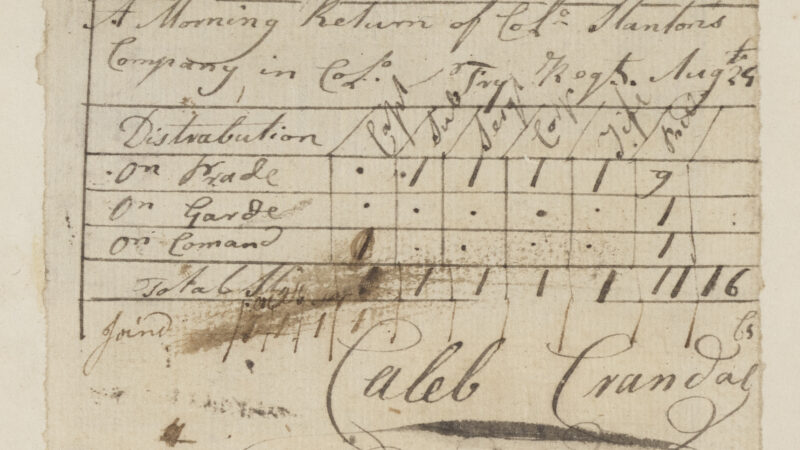 A Morning Return of Colo Stantons
Company in Colo Fry Regt. Augt 29
Distrabution Capt Sub Sergt Corp Fife Privt
On Prade . 1 1 1 1 9
On Garde . . . . . 1
On Comand 1 . . . . 1
Total 1 1 1 1 11 16
Joind
Caleb Crandal